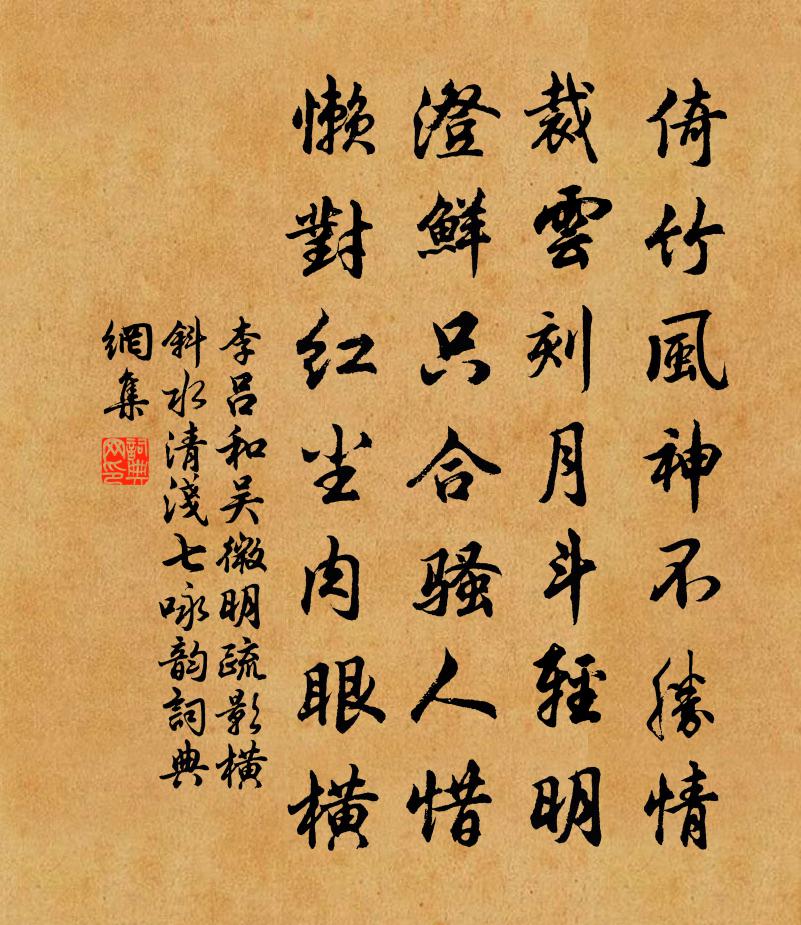 倚竹風神不勝情
裁雲刻月斗輕明
澄鮮只合騷人惜
懶對紅尘肉眼橫
李呂和吴微明疏影橫
斜水清淺七咏韵詞典
網集
詞典
网印